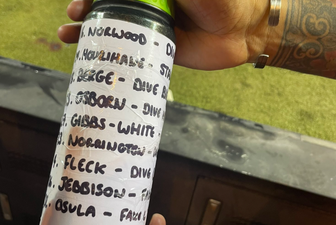 . NORWOOD - D
. HOURIHANE - STA
. BERGE - DIVE
. OSBORN - DIVE
. GIBBS-WHITE -
. NORRINGTON -
. FLECK - DIVE
. JEBBISON - FA
. OSULA - FAKE